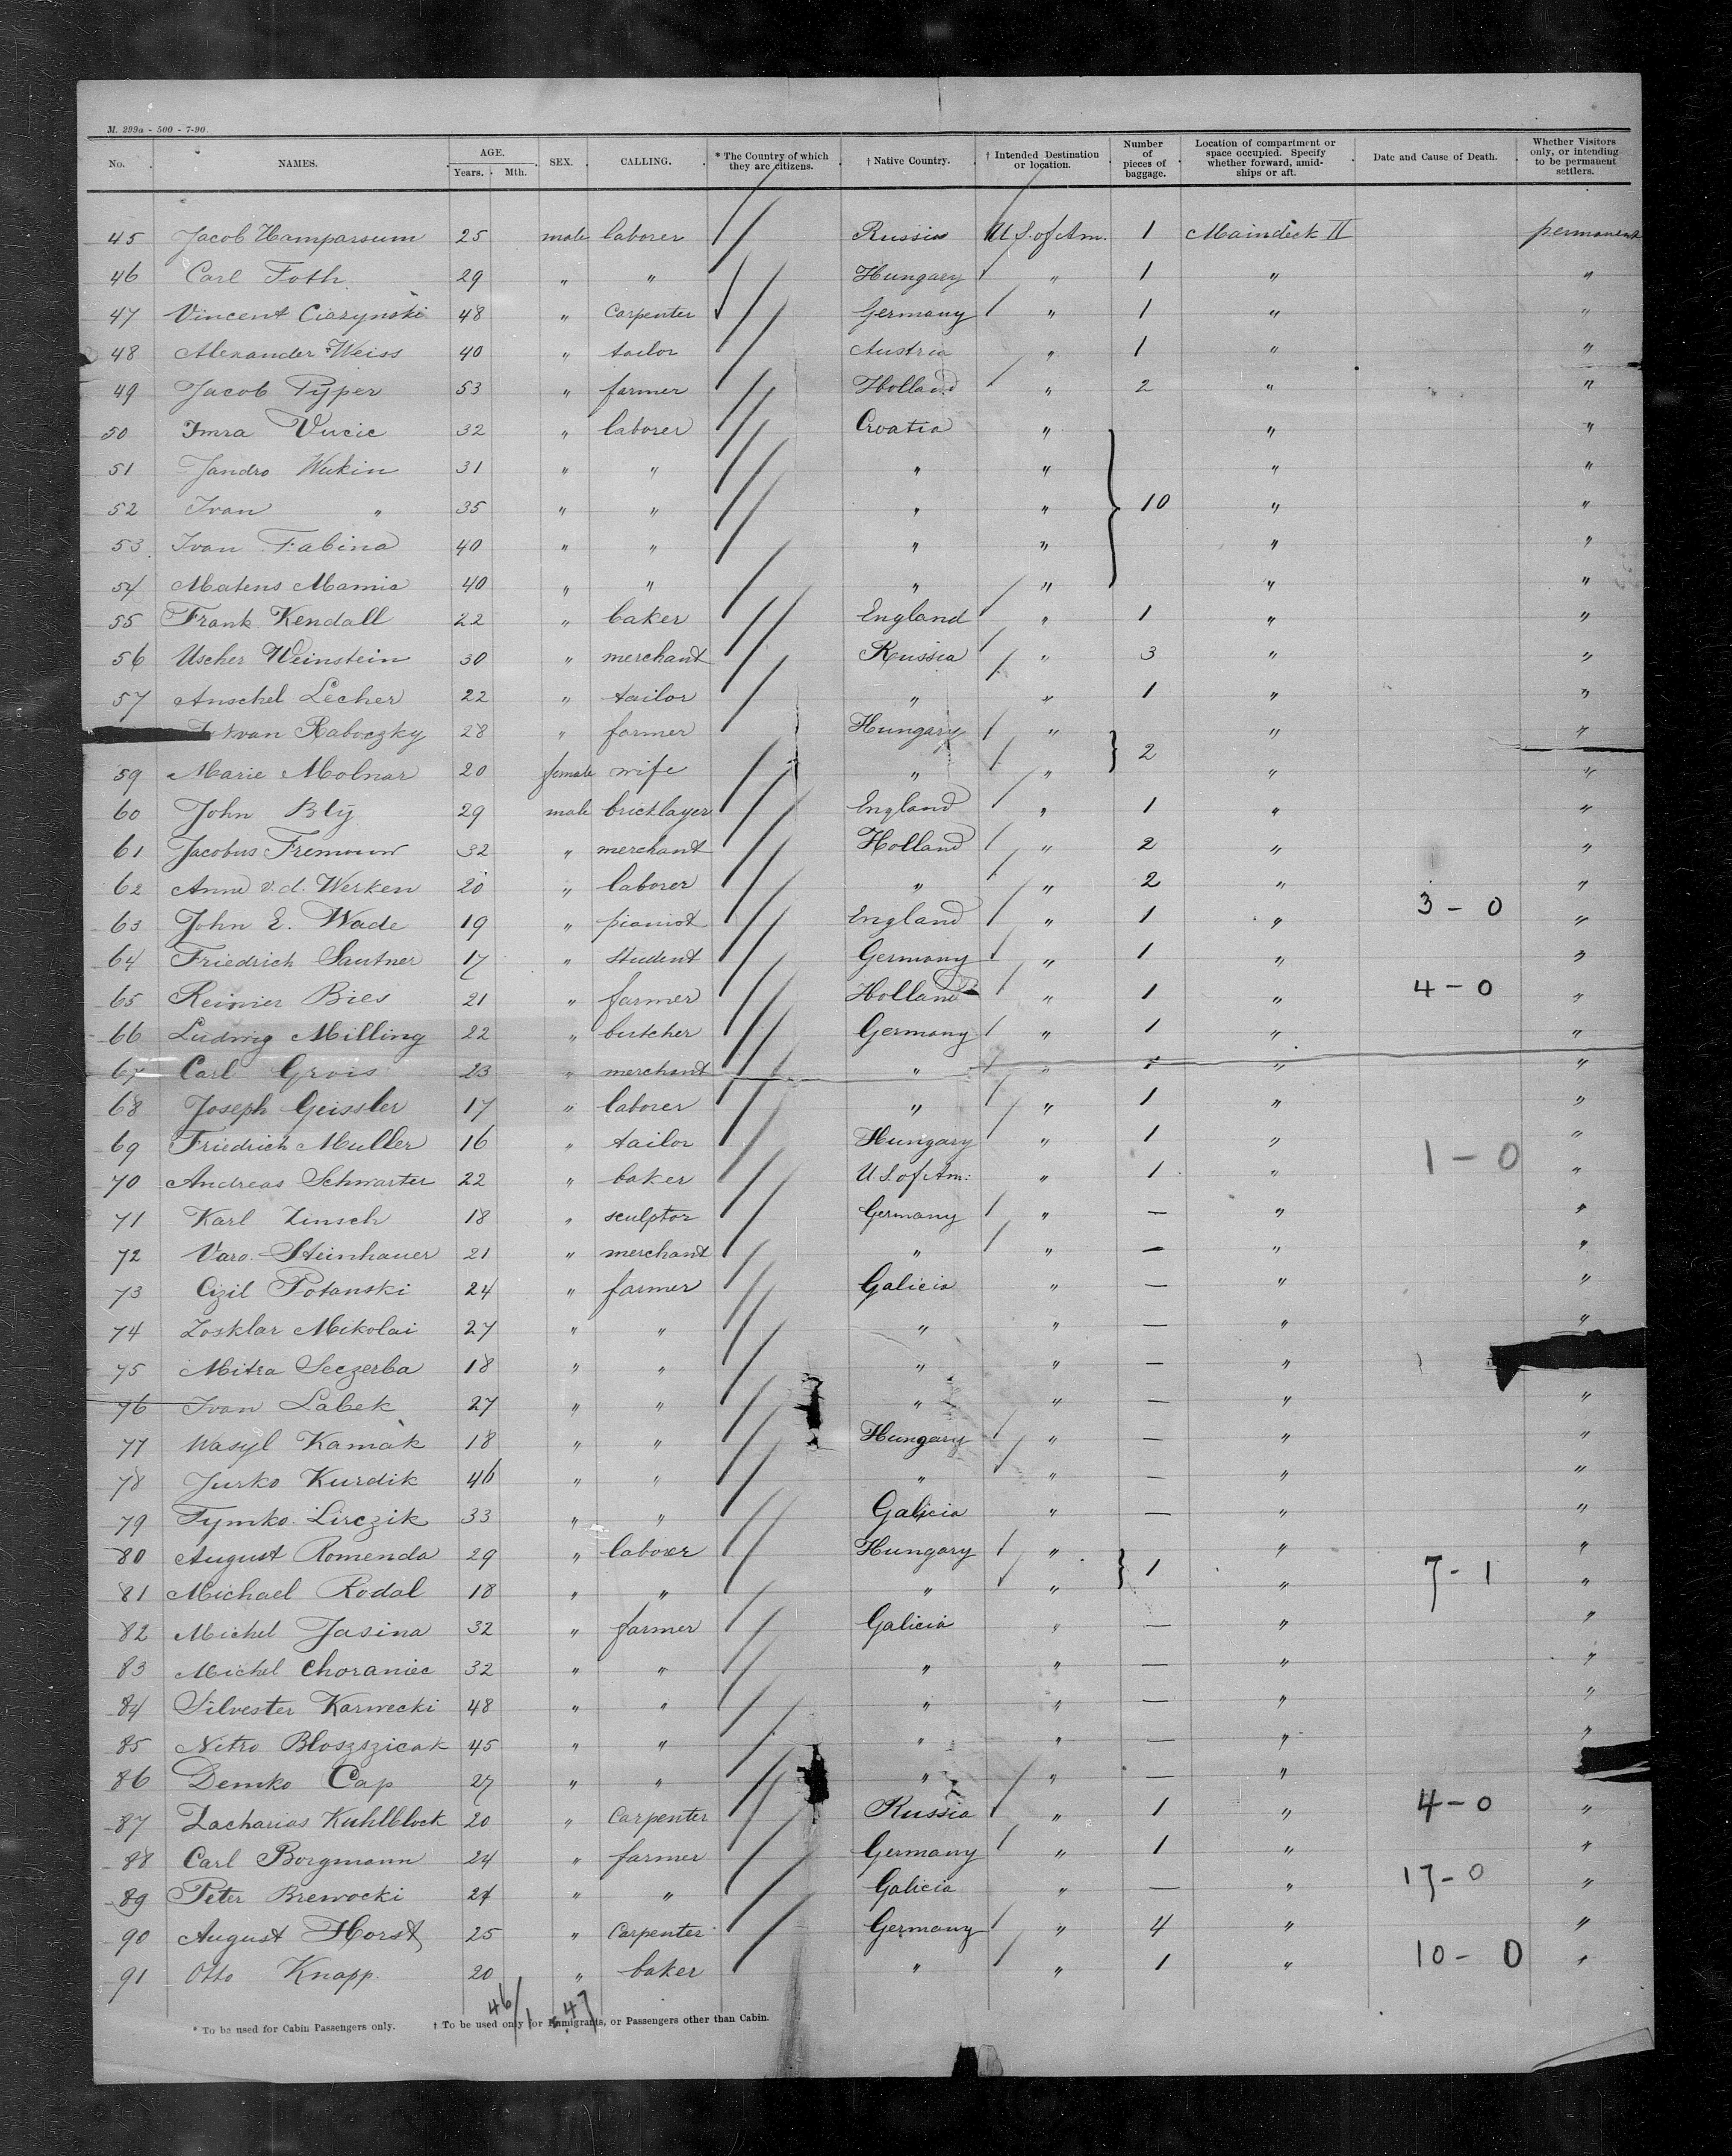 M. 299a - 500 - 7-90.
No. NAMES. AGE. Years. Mth. SEX. CALLING. * The Country of which they are citizens. † Native Country. † Intended Destination or location. Number of pieces of baggage. Location of compartment or space occupied. Specify whether forward, amidships or aft. Date and Cause of Death. Whether Visitors only, or intending to be permanent settlers.
45 Jacob Hamparsum 25 male laborer Russia U S. of Am. 1 Maindeck II permanent
46 Carl Foth 29 " " Hungary " 1 " "
47 Vincent Ciazynski 48 " Carpenter Germany " 1 " "
48 Alexander Weiss 40 " tailor Austria " 1 " "
49 Jacob Pijper 53 " farmer Holland " 2 " "
50 Imra Vucic 32 " laborer Croatia " " "
51 Jandro Wukin 31 " " " " " "
52 Ivan " 35 " " " " 10 " "
53 Ivan Fabina 40 " " " " " "
54 Matens Mamia 40 " " " " " "
55 Frank Kendall 22 " baker England " 1 " "
56 Uscher Weinstein 30 " merchant Russia " 3 " "
57 Anschel Lecher 22 " tailor " " 1 " "
Raboczky 28 " farmer Hungary " 2 " "
59 Marie Molnar 20 female wife " " " "
60 John Blÿ 29 male bricklayer England " 1 " "
61 Jacobus Fremouw 32 " merchant Holland " 2 " "
62 Anne v. d. Werken 20 " laborer " " 2 " "
63 John E. Wade 19 " pianist England " 1 " 3 - 0 "
64 Friedrich Sautner 17 " Student Germany " 1 " "
65 Reinier Bies 21 " farmer Holland " 1 " 4 - 0 "
66 Ludwig Milling 22 " butcher Germany " 1 " "
67 Carl Grois 23 " merchant " " 1 " "
68 Joseph Geissler 17 " laborer " " 1 " "
69 Friedrich Muller 16 " tailor Hungary " 1 " "
70 Andreas Schwarter 22 " baker U S. of Am: " 1 " 1 - 0 "
71 Karl Zinsch 18 " sculptor Germany " — " "
72 Varo. Steinhauer 21 " merchant " " — " "
73 Cizil Potanski 24 " farmer Galicia " — " "
74 Zosklar Mikolai 27 " " " " — " "
75 Mitra Seczerba 18 " " " " — "
76 Ivan Labek 27 " " " " — " "
77 Wasyl Kamak 18 " " Hungary " — " "
78 Jurko Kurdik 46 " " " " — " "
79 Tymko Lirczik 33 " " Galicia " — " "
80 August Romenda 29 " laborer Hungary " 1 " "
81 Michael Rodal 18 " " " " " 7 - 1 "
82 Michel Jasina 32 " farmer Galicia " — " "
83 Michel Choraniec 32 " " " " — " "
84 Silvester Karwecki 48 " " " " — " "
85 Nitro Bloszszicak 45 " " " " — " "
86 Demko Cap 27 " " " " — "
87 Zacharias Kuhlblock 20 " Carpenter Russia " 1 " 4 - 0 "
88 Carl Borgmann 24 " farmer Germany " 1 " "
89 Peter Brewocki 24 " " Galicia " — " 17 - 0 "
90 August Horst 25 " Carpenter Germany " 4 " "
91 Otto Knapp. 20 " baker " " 1 " 10 - 0 "
46/1 47
* To be used for Cabin Passengers only. † To be used only for Emigrants, or Passengers other than Cabin.